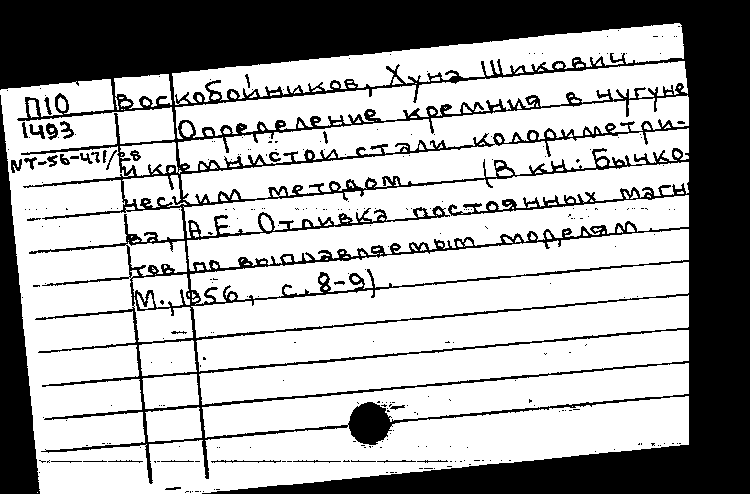 П10 Воскобойников, Хунэ Шикович.
1493 Определение кремния в чугуне
NT-56-471/28 и кремнистой стали колориметри-
ческим методом. (В кн.: Бычко-
ва, А.Е. Отливка постоянных магни
тов по выплавляемым моделям.
М., 1956, с. 8-9).